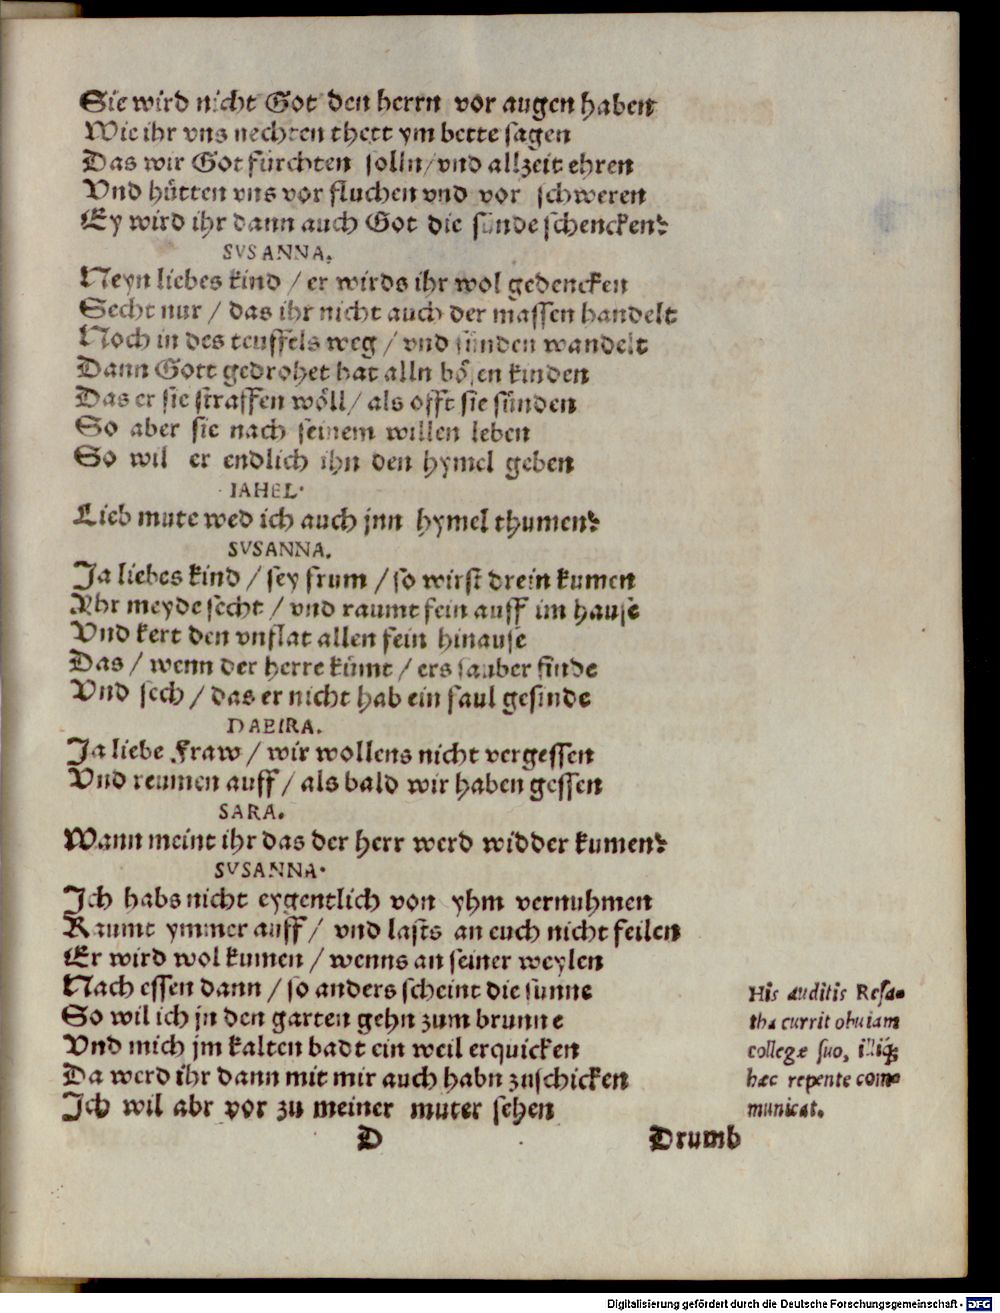 Sie wird nicht Got den herrn vor augen haben
Wie ihr vns nechten thett ym bette sagen
Das wir Got fürchten solln/vnd allzeit ehren
Vnd hütten vns vor fluchen vnd vor schweren
Ey wird ihr dann auch Got die sünde schencken?
SVSANNA.
Neyn liebes kind / er wirds ihr wol gedencken
Secht nur / das ihr nicht auch der massen handelt
Noch in des teuffels weg / vnd sünden wandelt
Dann Gott gedrohet hat alln bösen kinden
Das er sie straffen wöll/ als offt sie sünden
So aber sie nach seinem willen leben
So wil er endlich ihn den hymel geben
IAHEL.
Lieb mute wed ich auch jnn hymel thumen?
SVSANNA.
Ja liebes kind / sey frum / so wirst drein kumen
Ihr meyde secht / vnd raumt fein auff im hause
Vnd kert den vnflat allen fein hinause
Das / wenn der herre kümt / ers sauber finde
Vnd sech / das er nicht hab ein faul gesinde
DABIRA.
Ja liebe Fraw / wir wollens nicht vergessen
Vnd reumen auff / als bald wir haben gessen
SARA.
Wann meint ihr das der herr werd widder kumen?
SVSANNA.
Ich habs nicht eygentlich von yhm vernuhmen
Raumt ymmer auff / vnd lasts an euch nicht feilen
Er wird wol kumen / wenns an seiner weylen
Nach essen dann / so anders scheint die sunne
So wil ich jn den garten gehn zum brunne
Vnd mich jm kalten badt ein weil erquicken
Da werd ihr dann mit mir auch habn zuschicken
Ich wil abr vor zu meiner muter sehen
His auditis Resa-
tha currit obuiam
collegæ suo, illiq;
hæc repente com-
municat.
D
Drumb
Digitalisierung gefördert durch die Deutsche Forschungsgemeinschaft - DFG